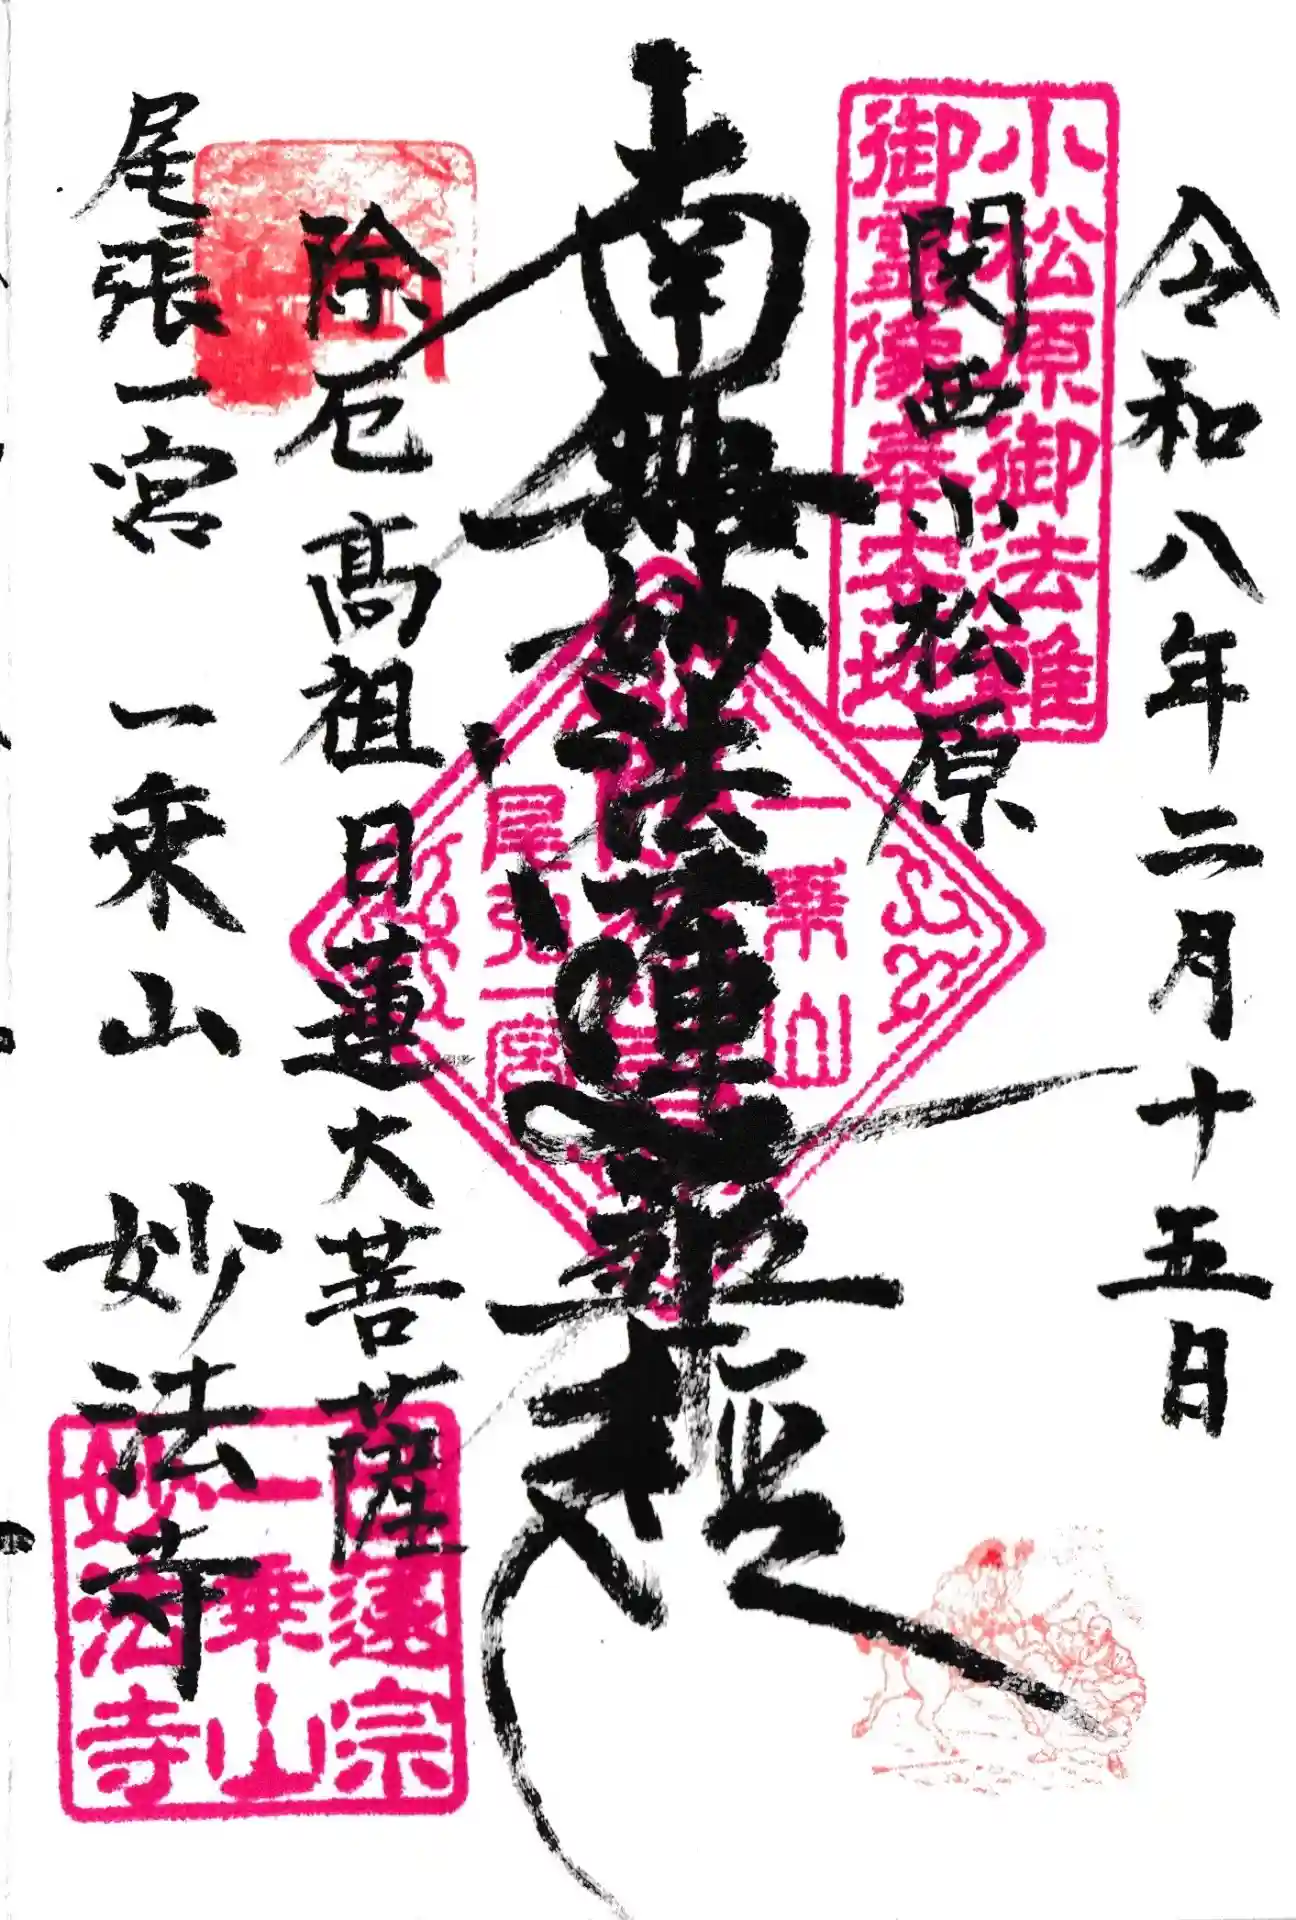 令和八年二月十五日
小松原御法難
御霊像奉安地
関西小松原
南無妙法蓮華経
一乗山
尾張一宮
除厄高祖日蓮大菩薩
尾張一宮 一乗山 妙法寺
日蓮宗
一乗山
妙法寺